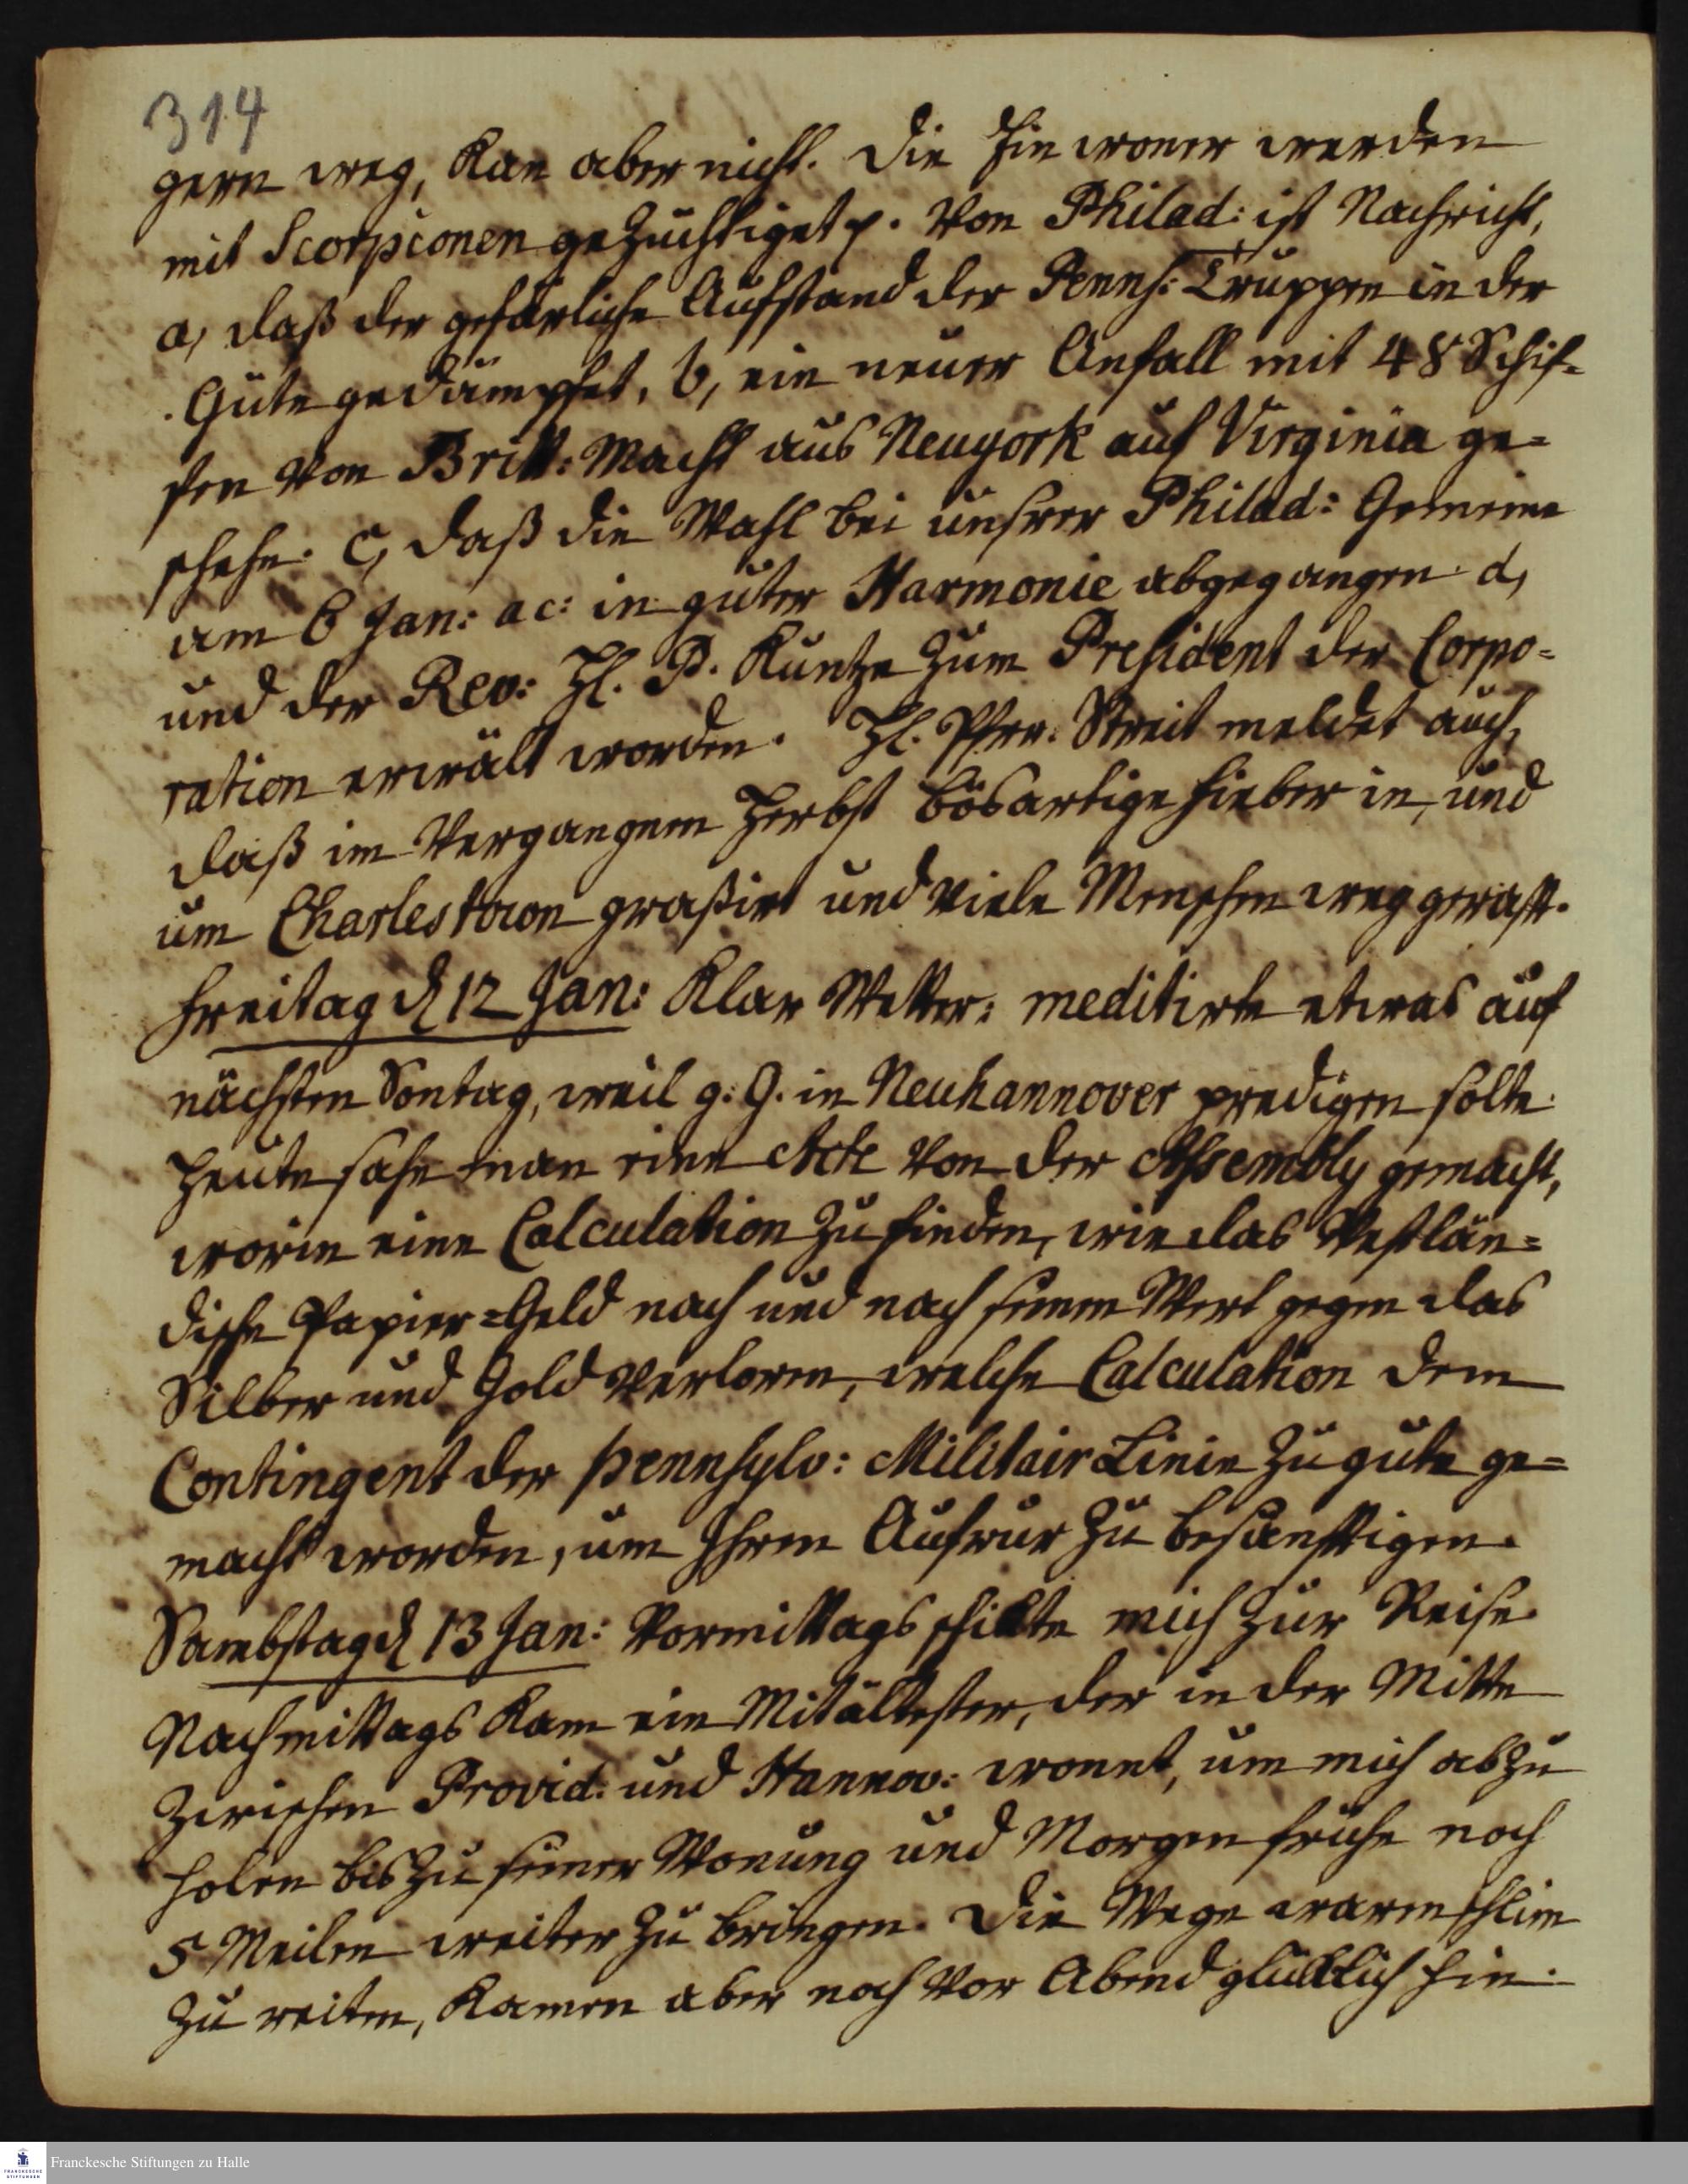 314
gern weg, kan aber nicht. Die Einwoner werden
mit Scorpionen gezüchtiget p. Von Philad: ist Nachricht,
a, daß der gefärliche Aufstand der Penns: Truppen in der
Güte gedämpfet, b, ein neuer Anfall mit 48 Schif-
fen von Britt: Macht aus Neuyork auf Virginia ge-
schehe. c, daß die Wahl bei unsrer Philad: Gemeine
am 6 Jan: ac: in guter Harmonie abgegangen. d,
und der Rev: H. P. Kuntze zum President der Corpo-
ration erwält worden. H. Pfrr. Streit meldet auch,
daß im vergangnen Herbst bösartige Fieber in, und
um Charlestown graßirt und viele Menschen weggeraft.
Freitag d 12 Jan: Klar Wetter: meditirte etwas auf
nächsten Sontag, weil g. G. in Neuhannover predigen solte.
Heute sahe man eine Acte von der Assembly gemacht,
worin eine Calculation zu finden, wie das Vestlän-
dische Papier-Geld nach und nach seinen Wert gegen das
Silber und Gold verloren, welche Calculation dem
Contingent der pennsylv: Militair Linie zu gute ge-
macht worden, um Ihren Aufrur zu besänftigen.
Sambstag d 13 Jan: Vormittags schikte mich zur Reise.
Nachmittags kam ein Mitältester, der in der Mitte
zwischen Provid: und Hannov: wonnt, um mich abzu
holen bis zu seiner Wonung und Morgen frühe noch
5 Meilen weiter zu bringen. Die Wege waren schlim
zu reiten, kamen aber noch vor Abend glüklich hin.
FRANCKESCHE
STIFTUNGEN
Franckesche Stiftungen zu Halle